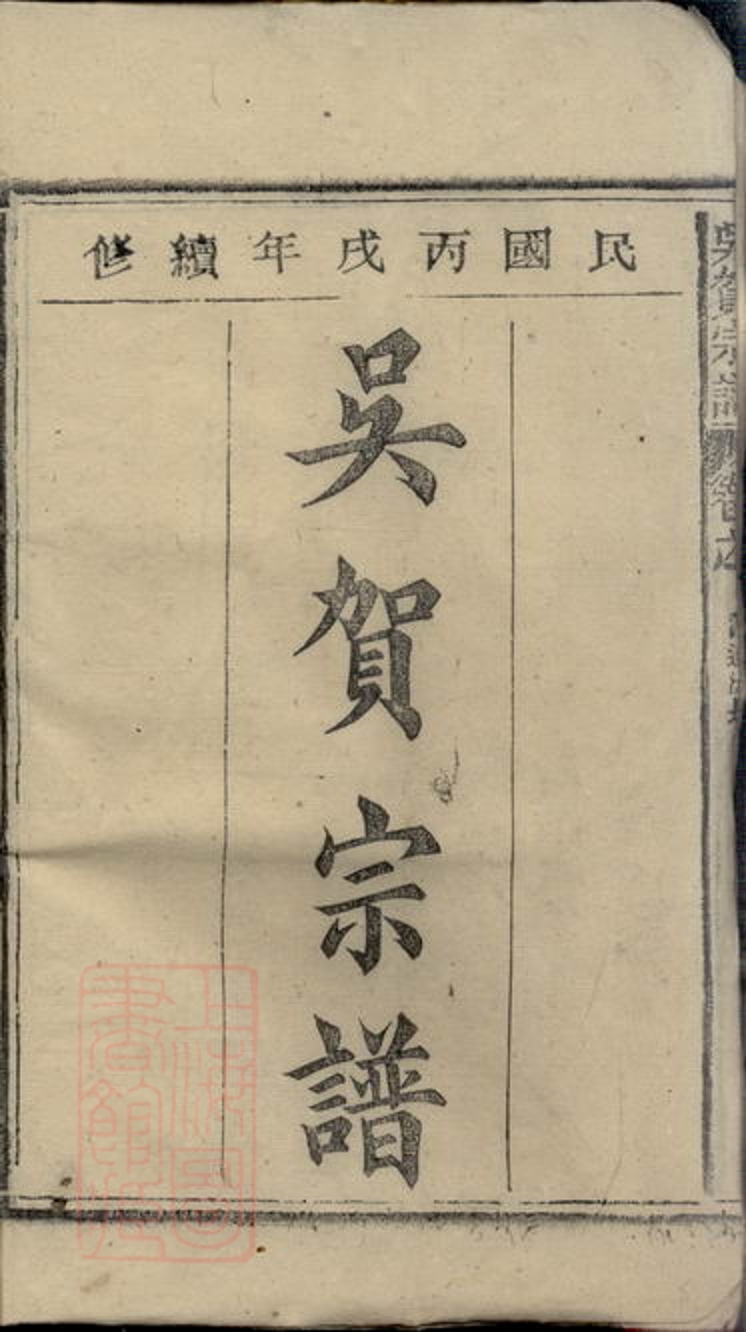 民國丙戌年續修
吳賀宗譜
吳賀宗譜
卷之
上海圖書館藏